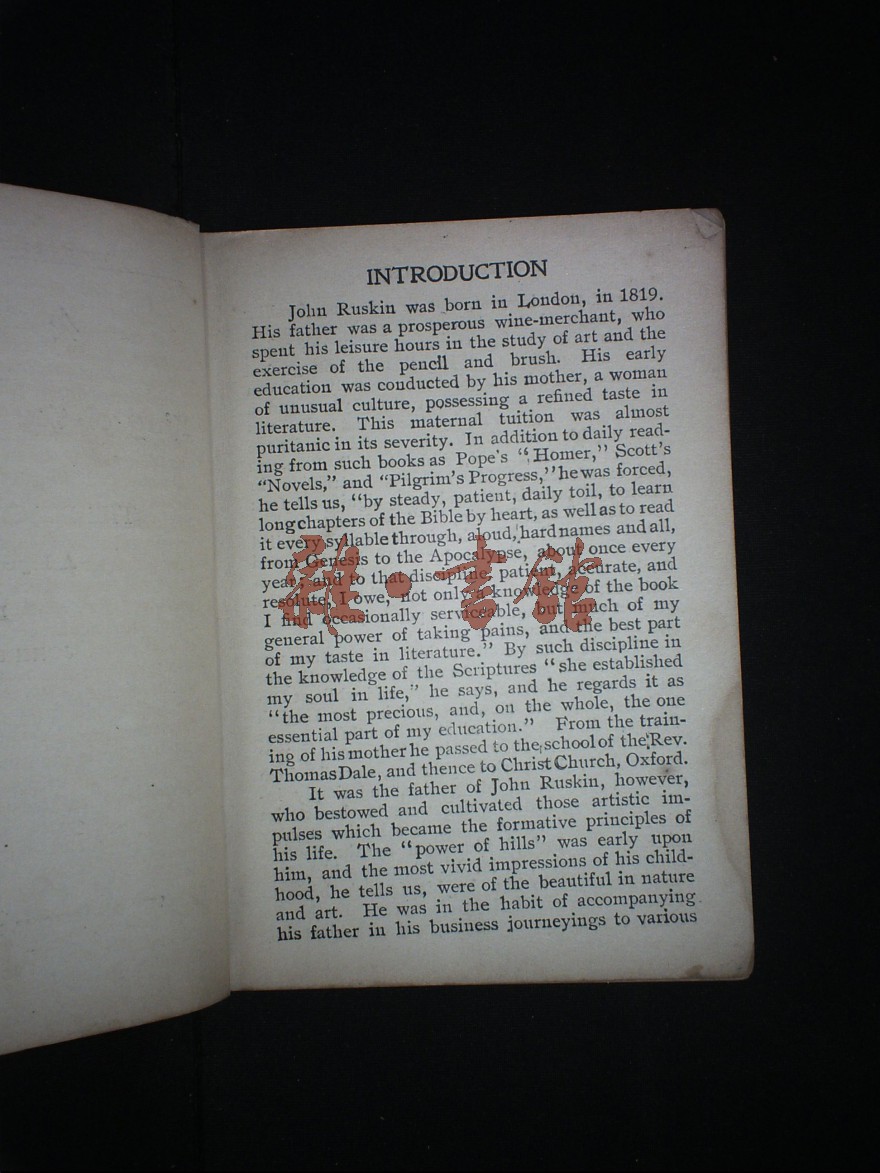 INTRODUCTION
John Ruskin was born in London, in 1819.
His father was a prosperous wine-merchant, who
spent his leisure hours in the study of art and the
exercise of the pencil and brush. His early
education was conducted by his mother, a woman
of unusual culture, possessing a refined taste in
literature. This maternal tuition was almost
puritanic in its severity. In addition to daily read-
ing from such books as Pope's "Homer," Scott's
"Novels," and "Pilgrim's Progress," he was forced,
he tells us, "by steady, patient, daily toil, to learn
long chapters of the Bible by heart, as well as to read
it every syllable through, aloud, hard names and all,
from Genesis to the Apocalypse, about once every
year; and to that discipline, patient, accurate, and
resolute, I owe, not only a knowledge of the book
I find occasionally serviceable, but much of my
general power of taking pains, and the best part
of my taste in literature." By such discipline in
the knowledge of the Scriptures "she established
my soul in life," he says, and he regards it as
"the most precious, and, on the whole, the one
essential part of my education." From the train-
ing of his mother he passed to the school of the Rev.
Thomas Dale, and thence to Christ Church, Oxford.
It was the father of John Ruskin, however,
who bestowed and cultivated those artistic im-
pulses which became the formative principles of
his life. The "power of hills" was early upon
him, and the most vivid impressions of his child-
hood, he tells us, were of the beautiful in nature
and art. He was in the habit of accompanying
his father in his business journeyings to various
雜·書館